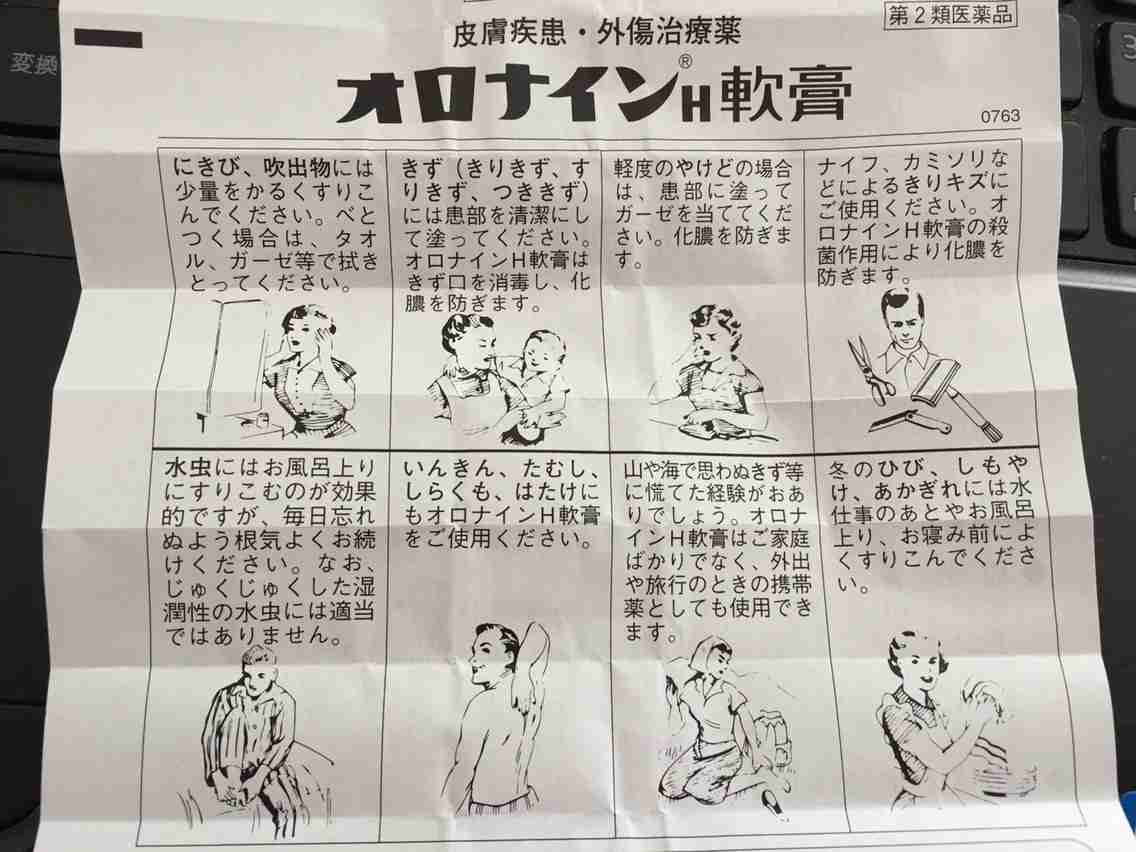 第2類医薬品
皮膚疾患・外傷治療薬
オロナイン®H軟膏
0763
にきび、吹出物には
少量をかるくすりこ
んでください。べと
つく場合は、タオ
ル、ガーゼ等で拭き
とってください。
きず（きりきず、す
りきず、つききず）
には患部を清潔にし
て塗ってください。
オロナインH軟膏は
きず口を消毒し、化
膿を防ぎます。
軽度のやけどの場合
は、患部に塗って
ガーゼを当ててくだ
さい。化膿を防ぎま
す。
ナイフ、カミソリな
どによるきりキズに
ご使用ください。オ
ロナインH軟膏の殺
菌作用により化膿を
防ぎます。
水虫にはお風呂上り
にすりこむのが効果
的ですが、毎日忘れ
ぬよう根気よくお続
けください。なお、
じゅくじゅくした湿
潤性の水虫には適当
ではありません。
いんきん、たむし、
しらくも、はたけに
もオロナインH軟膏
をご使用ください。
山や海で思わぬきず等
に慌てた経験がおあ
りでしょう。オロナ
インH軟膏はご家庭
ばかりでなく、外出
や旅行のときの携帯
薬としても使用でき
ます。
冬のひび、しもや
け、あかぎれには水
仕事のあとやお風呂
上り、お寝み前によ
くすりこんでくださ
い。
変換
3